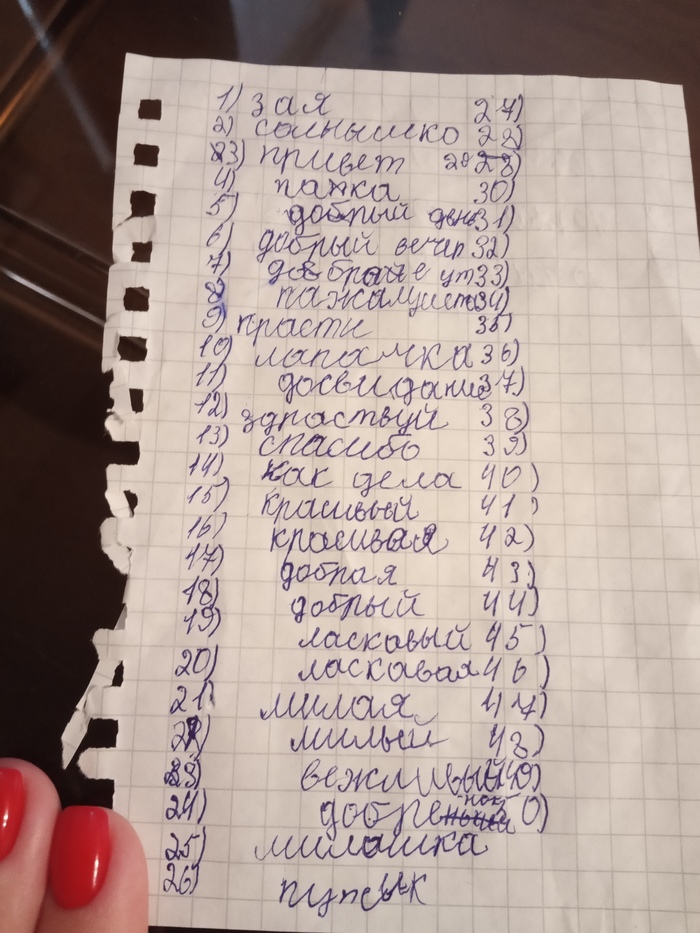 1) зая 27)
2) солнышко 28)
3) привет 29)
4) папка 30)
5) добрый день 31)
6) добрый вечер 32)
7) доброе ут 33)
8 пажалуйста 34)
9) прасти 35)
10) лапачка 36)
11) досвидание 37)
12) здраствуй 38)
13) спасибо 39)
14) как дела 40)
15) красивый 41)
16) красивая 42)
17) добрая 43)
18) добрый 44)
19) ласковый 45)
20) ласкавая 46)
21) милая 47)
22) милый 48)
23) вежливый 49)
24) добре 50)
25) милашка
26) пупсик